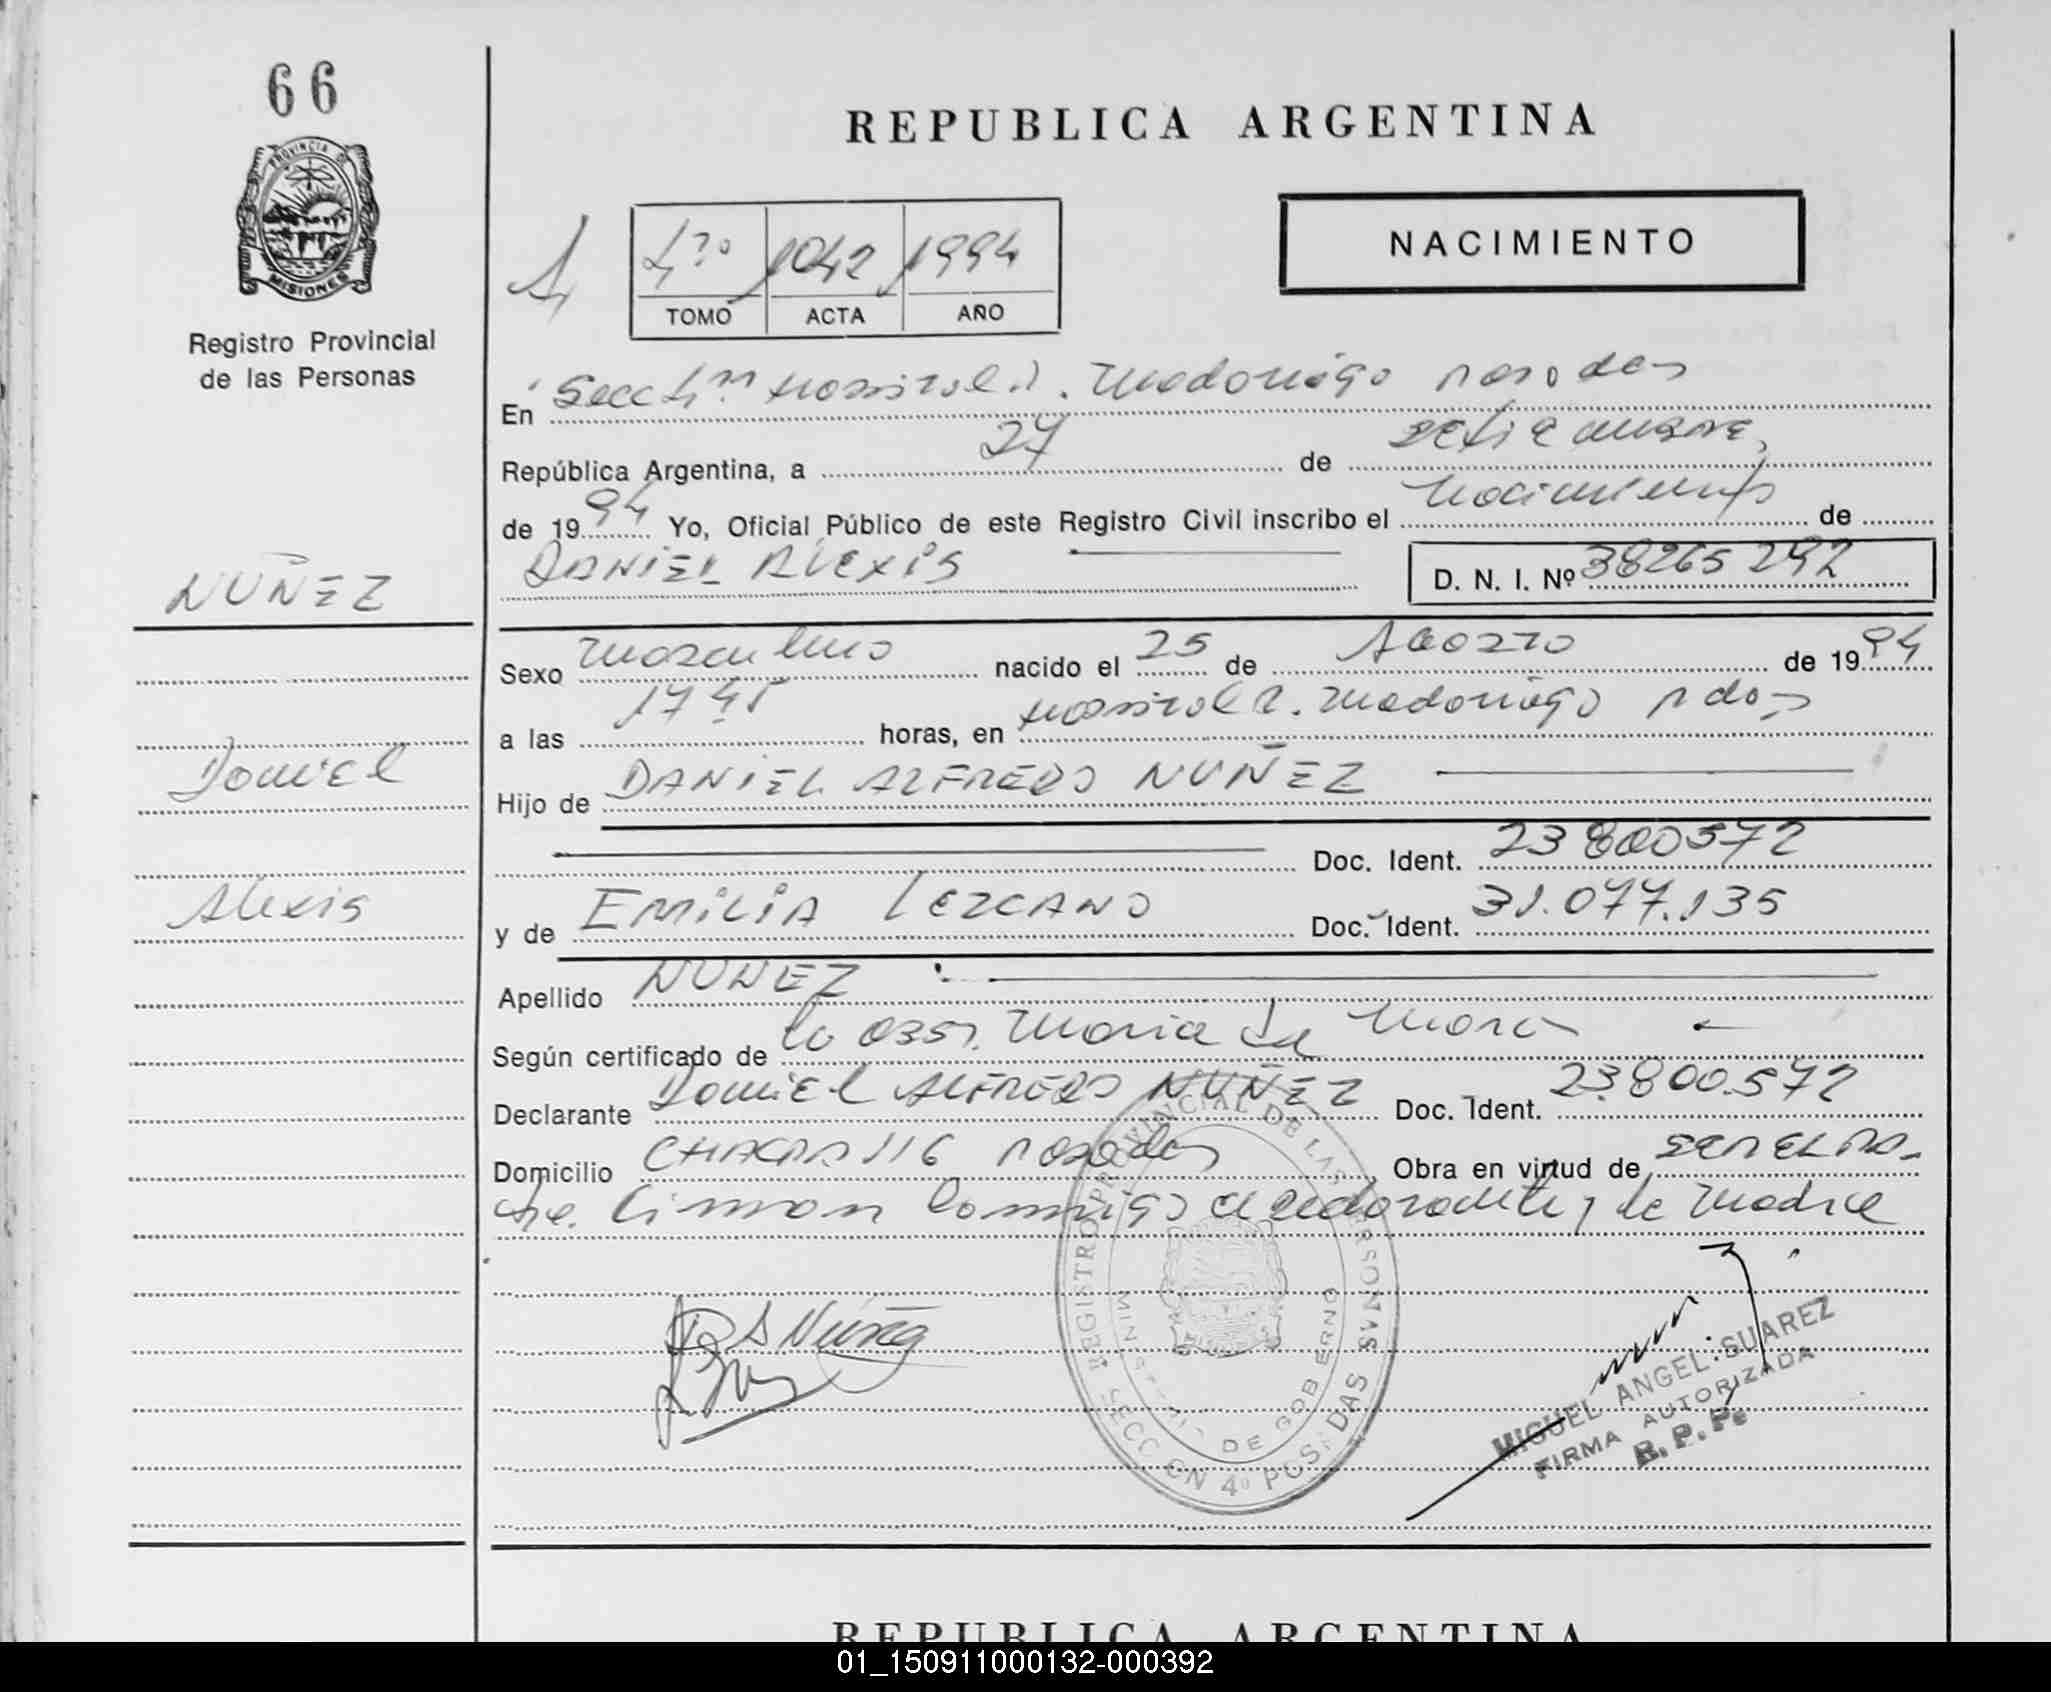 66
PROVINCIA DE
MISIONES
Registro Provincial
de las Personas
REPUBLICA ARGENTINA
NACIMIENTO
4º 1042 1994
TOMO ACTA AÑO
En Secc 4ta Hospital R. Madariaga Posadas
República Argentina, a 27 de setiembre,
de 1994 Yo, Oficial Público de este Registro Civil inscribo el nacimiento de
DANIEL ALEXIS
D. N. I. Nº 38265292
NUÑEZ
Daniel
Alexis
Sexo masculino nacido el 25 de Agosto de 1994
a las 1745 horas, en Hospital R. Madariaga Pdas
Hijo de DANIEL ALFREDO NUÑEZ
Doc. Ident. 23800572
y de EMILIA LEZCANO Doc. Ident. 31.077.135
Apellido NUÑEZ
Según certificado de la Obst. Maria de
Declarante Daniel ALFREDO NUÑEZ Doc. Ident. 23.800.572
Domicilio CHACRA 116 Posadas Obra en virtud de
Firman conmigo el declarante y la madre
D A Núñez
REGISTRO PROVINCIAL DE LAS PERSONAS
MINISTERIO DE GOBIERNO
SECCION 4º POSADAS
MIGUEL ANGEL SUAREZ
FIRMA AUTORIZADA
R.P.P.
REPUBLICA ARGENTINA
01_150911000132-000392